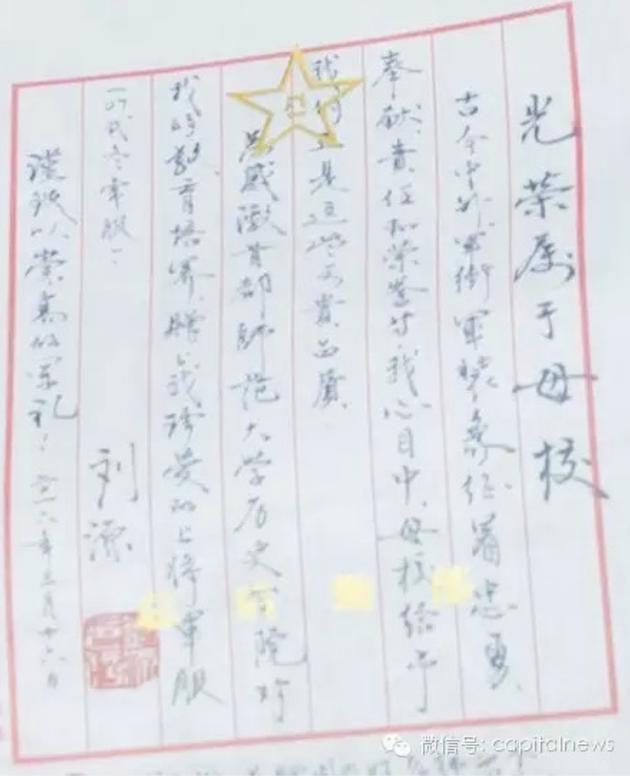 光荣属于母校
古今中外军衔军装象征着忠勇、
奉献、责任和荣誉。我心目中，母校给予
我们正是这些可贵品质。
感激首都师范大学历史学院对
我的教育培养，赠我珍爱的上将军服
（一时代冬常服）！
谨致以崇高的军礼！
刘源
二〇一六年三月十六日
微信号: capitalnews